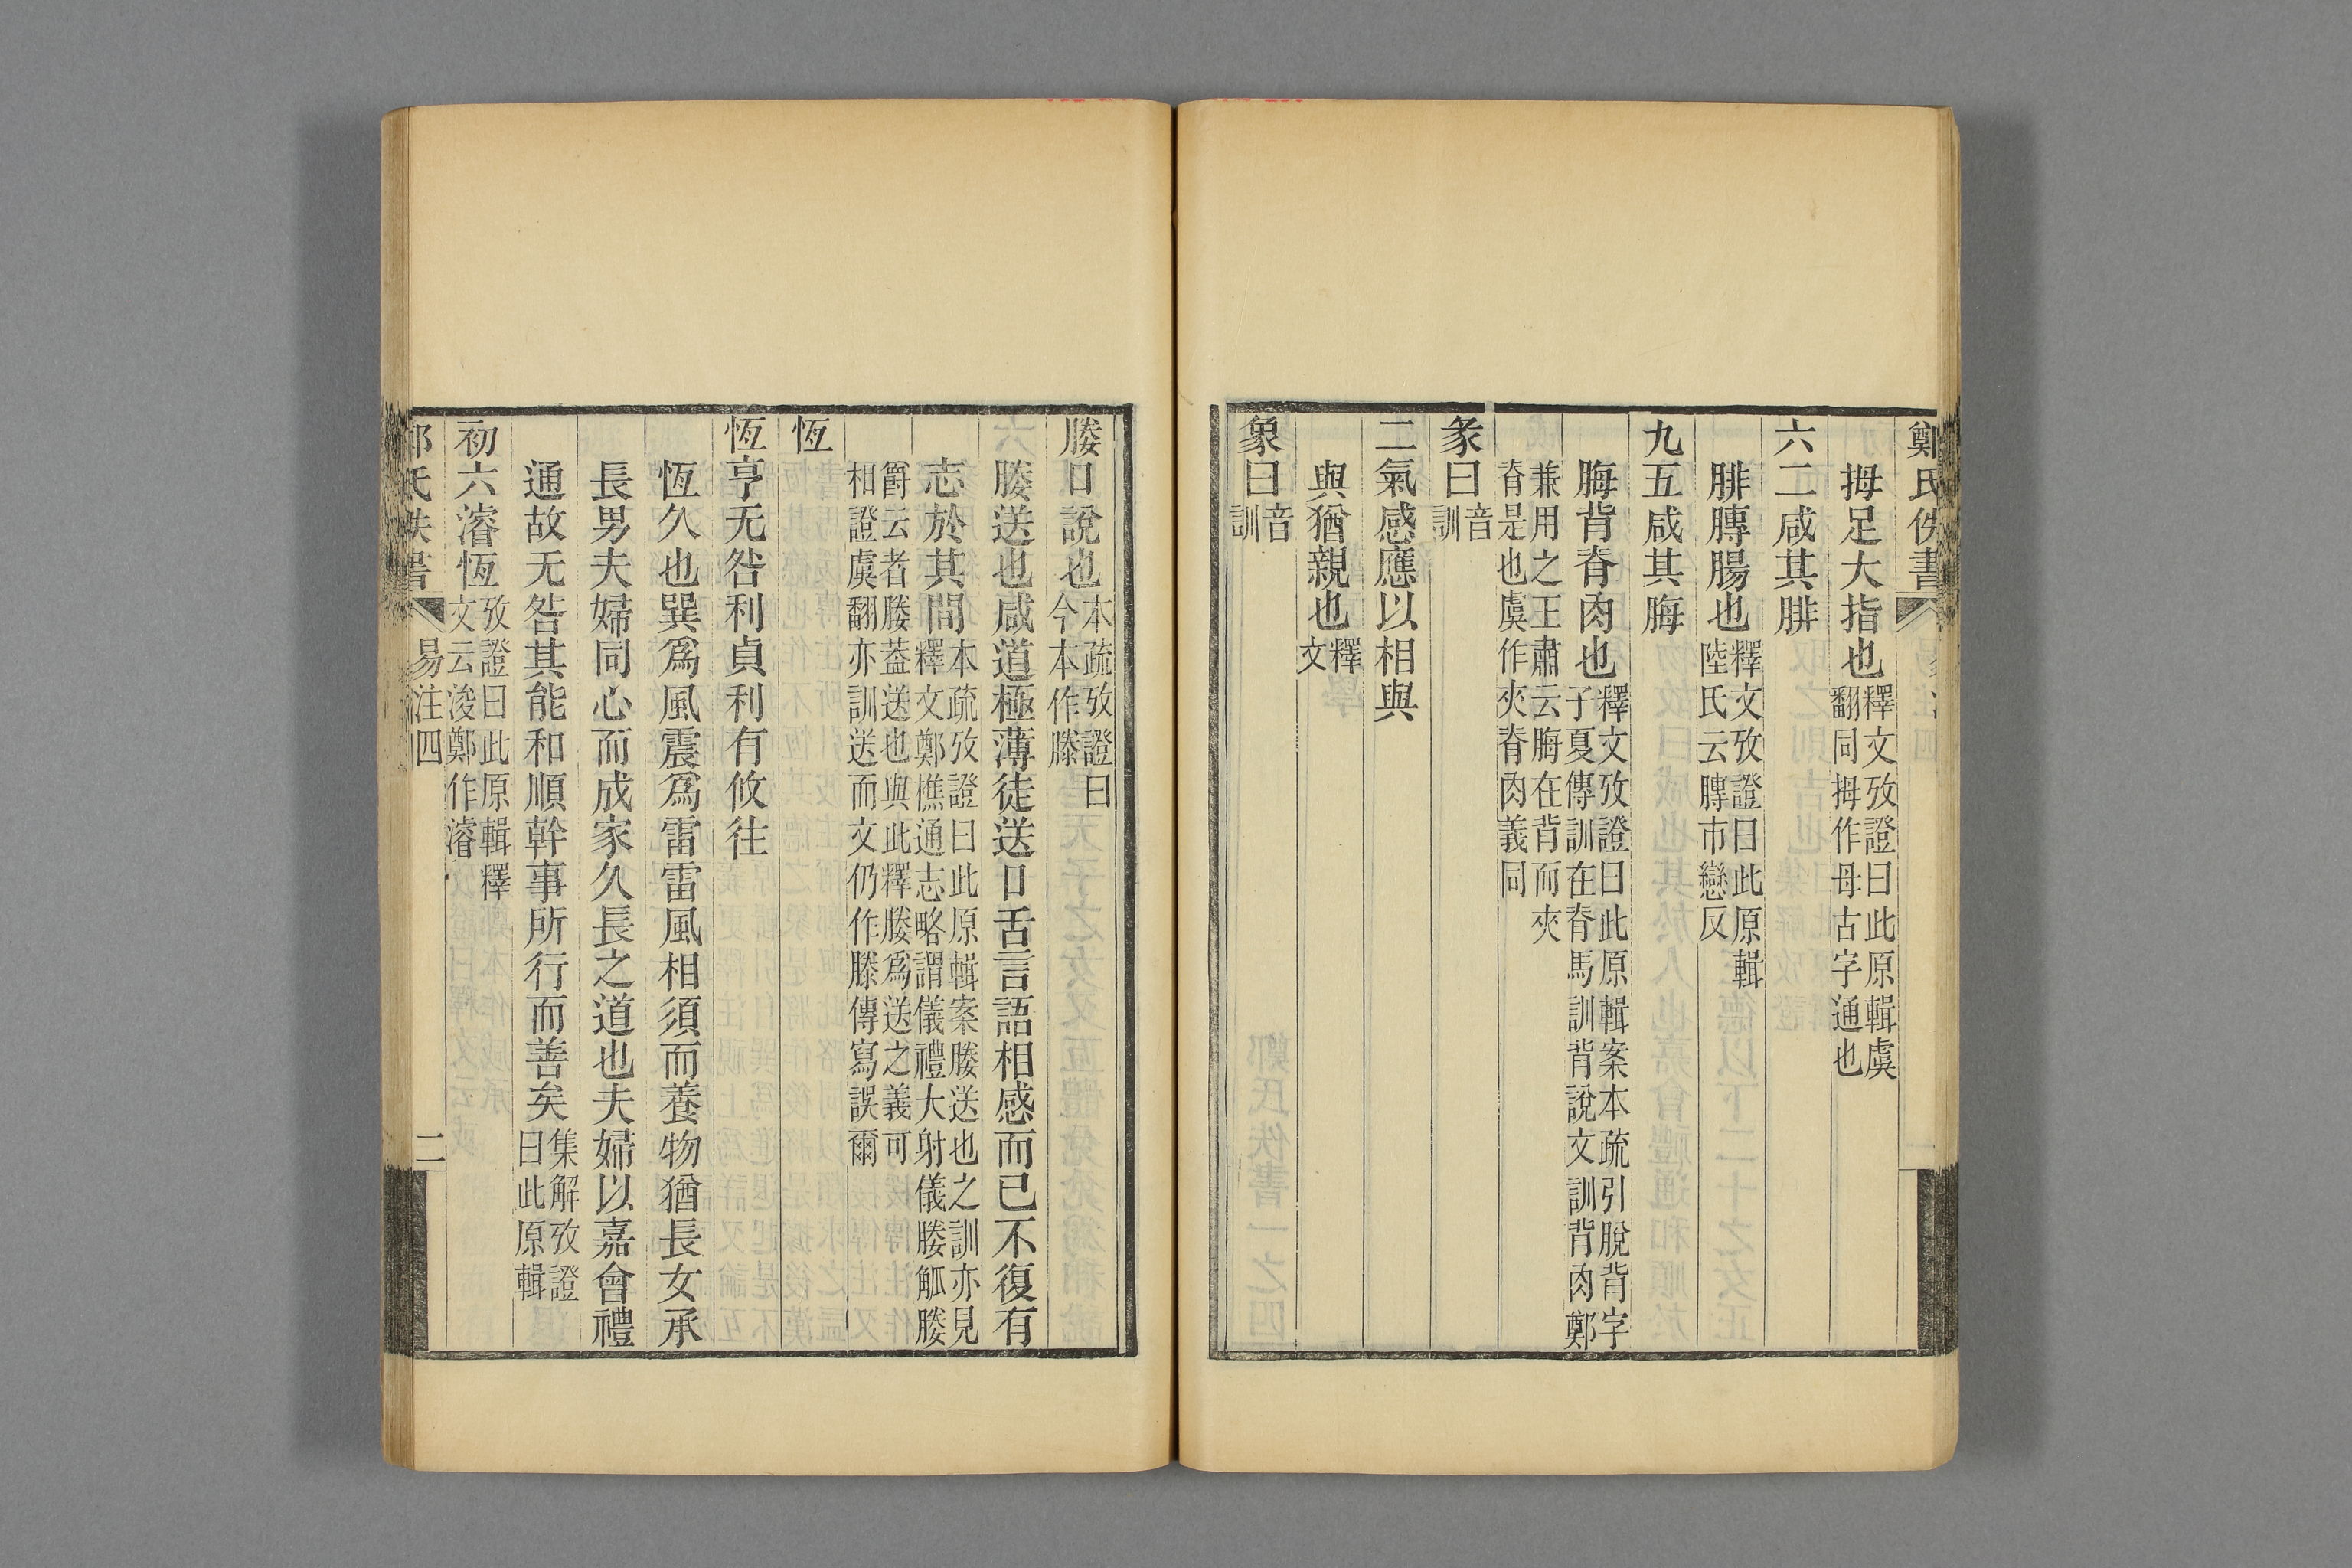 鄭氏佚書
拇足大指也釋文攷證曰此原輯虞翻同拇作母古字通也
六二咸其腓
腓膊腸也釋文攷證曰此原輯陸氏云膊市戀反
九五咸其脢
脢背脊肉也釋文攷證曰此原輯案本疏引脫背字鄭子夏傳訓在脊馬訓背說文訓背肉
兼用之王肅云脢在背而夾脊是也虞作夾脊肉義同
彖曰音訓
二氣感應以相與
與猶親也釋文
象曰音訓
媵口說也本疏攷證曰今本作滕
媵送也咸道極薄徒送口舌言語相感而已不復有
志於其間本疏攷證曰此原輯案媵送也之訓亦見釋文鄭樵通志略謂儀禮大射儀媵觚媵
爵云者媵葢送也與此釋媵爲送之義可相證虞翻亦訓送而文仍作滕傳寫誤爾
恆
恆亨无咎利貞利有攸往
恆久也巽爲風震爲雷雷風相須而養物猶長女承
長男夫婦同心而成家久長之道也夫婦以嘉會禮
通故无咎其能和順幹事所行而善矣集解攷證曰此原輯
初六濬恆攷證曰此原輯釋文云浚鄭作濬
氏佚書 易注四 二